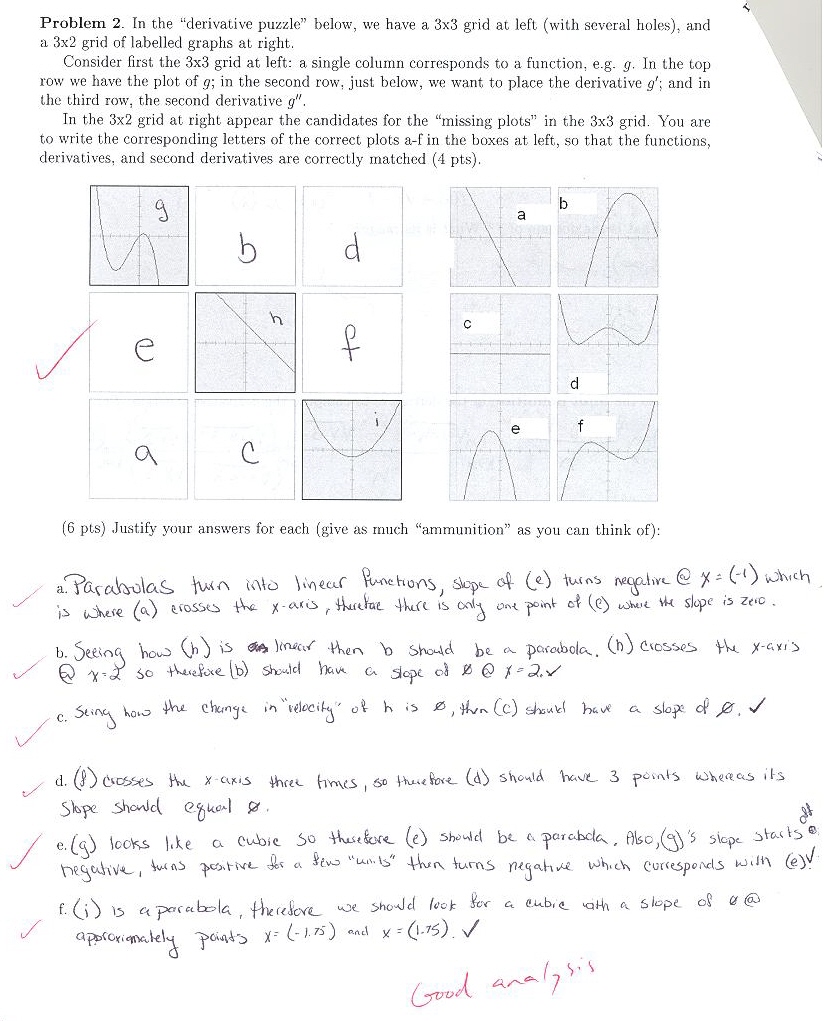 Problem 2. In the “derivative puzzle” below, we have a 3x3 grid at left (with several holes), and
a 3x2 grid of labelled graphs at right.
Consider first the 3x3 grid at left: a single column corresponds to a function, e.g. g. In the top
row we have the plot of g; in the second row, just below, we want to place the derivative g′; and in
the third row, the second derivative g″.
In the 3x2 grid at right appear the candidates for the “missing plots” in the 3x3 grid. You are
to write the corresponding letters of the correct plots a-f in the boxes at left, so that the functions,
derivatives, and second derivatives are correctly matched (4 pts).
g b d a b
e h f c d
a c i e f
(6 pts) Justify your answers for each (give as much “ammunition” as you can think of):
a. Parabolas turn into linear functions, slope of (e) turns negative @ x = (-1) which
is where (a) crosses the x-axis, therefore there is only one point of (e) where the slope is zero.
b. Seeing how (h) is linear then b should be a parabola. (h) crosses the x-axis
@ x=2 so therefore (b) should have a slope of ø @ x=2. ✓
c. Seing how the change in "velocity" of h is ø, then (c) should have a slope of ø. ✓
d. (f) crosses the x-axis three times, so therefore (d) should have 3 points whereas its
slope should equal ø.
e. (g) looks like a cubic so therefore (e) should be a parabola. Also, (g)'s slope starts off
negative, turns positive for a few "units" then turns negative which corresponds with (e) ✓
f. (i) is a parabola, therefore we should look for a cubic with a slope of ø @
approximately points x= (-1.75) and x = (1.75). ✓
Good analysis